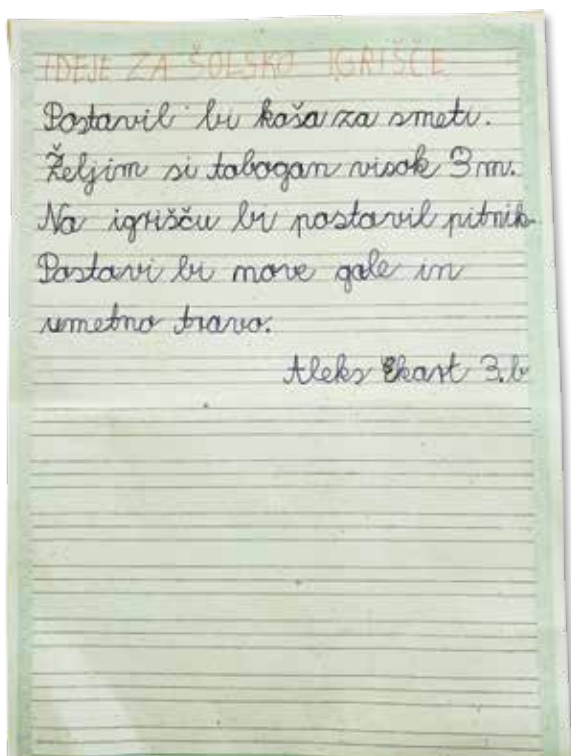 IDEJE ZA ŠOLSKO IGRIŠČE
Postavil bi koša za smeti.
Željim si tobogan visok 3 m.
Na igrišču bi postavil pitnik.
Postavi bi nove gole in
umetno travo.
Aleks Ekart 3.b